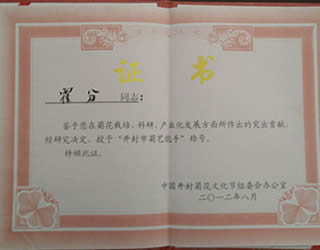 证 书
翟分 同志：
鉴于您在菊花栽培、科研、产业化发展方面所作出的突出贡献,
经研究决定，授予“开封市菊艺能手”称号。
特颁此证。
中国开封菊花文化节组委会办公室
二〇一二年八月